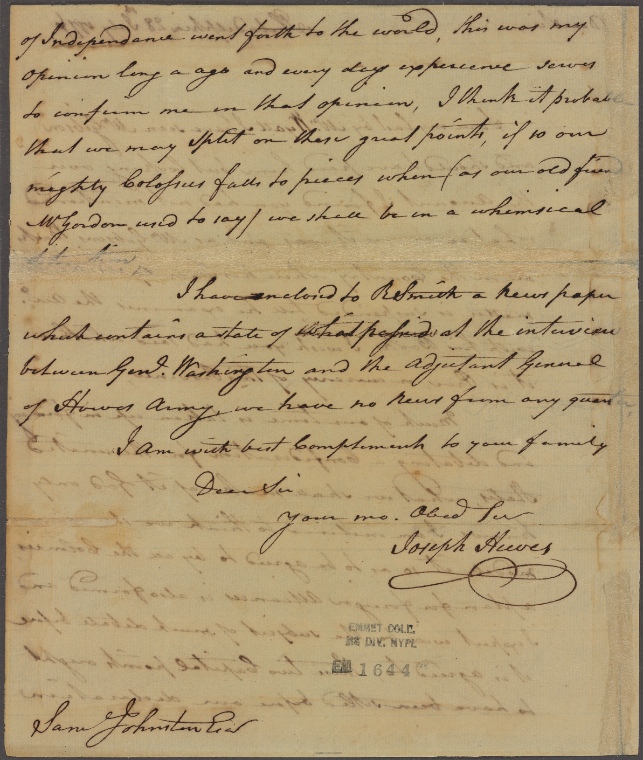 of Independance went forth to the world, this was my
opinion long a ago and every days experience serves
to confirm me in that opinion, I think it probabl
that we may split on these great points, if so our
mighty Colossus falls to pieces when (as our old frien
Mr Gordon used to say) we shall be in a whimsical
I have enclosed to R Smith a News paper
which contains a state of what passed at the interview
between Genl. Washington and the Adjutant General
of Howes Army, we have no News from any quar
I am with best Compliments to your family
Dear Sir
your mo. Obed Ser
Joseph Hewes
EMMET COLL.
MS DIV. NYPL
EM 1644
Saml Johnston Esqr